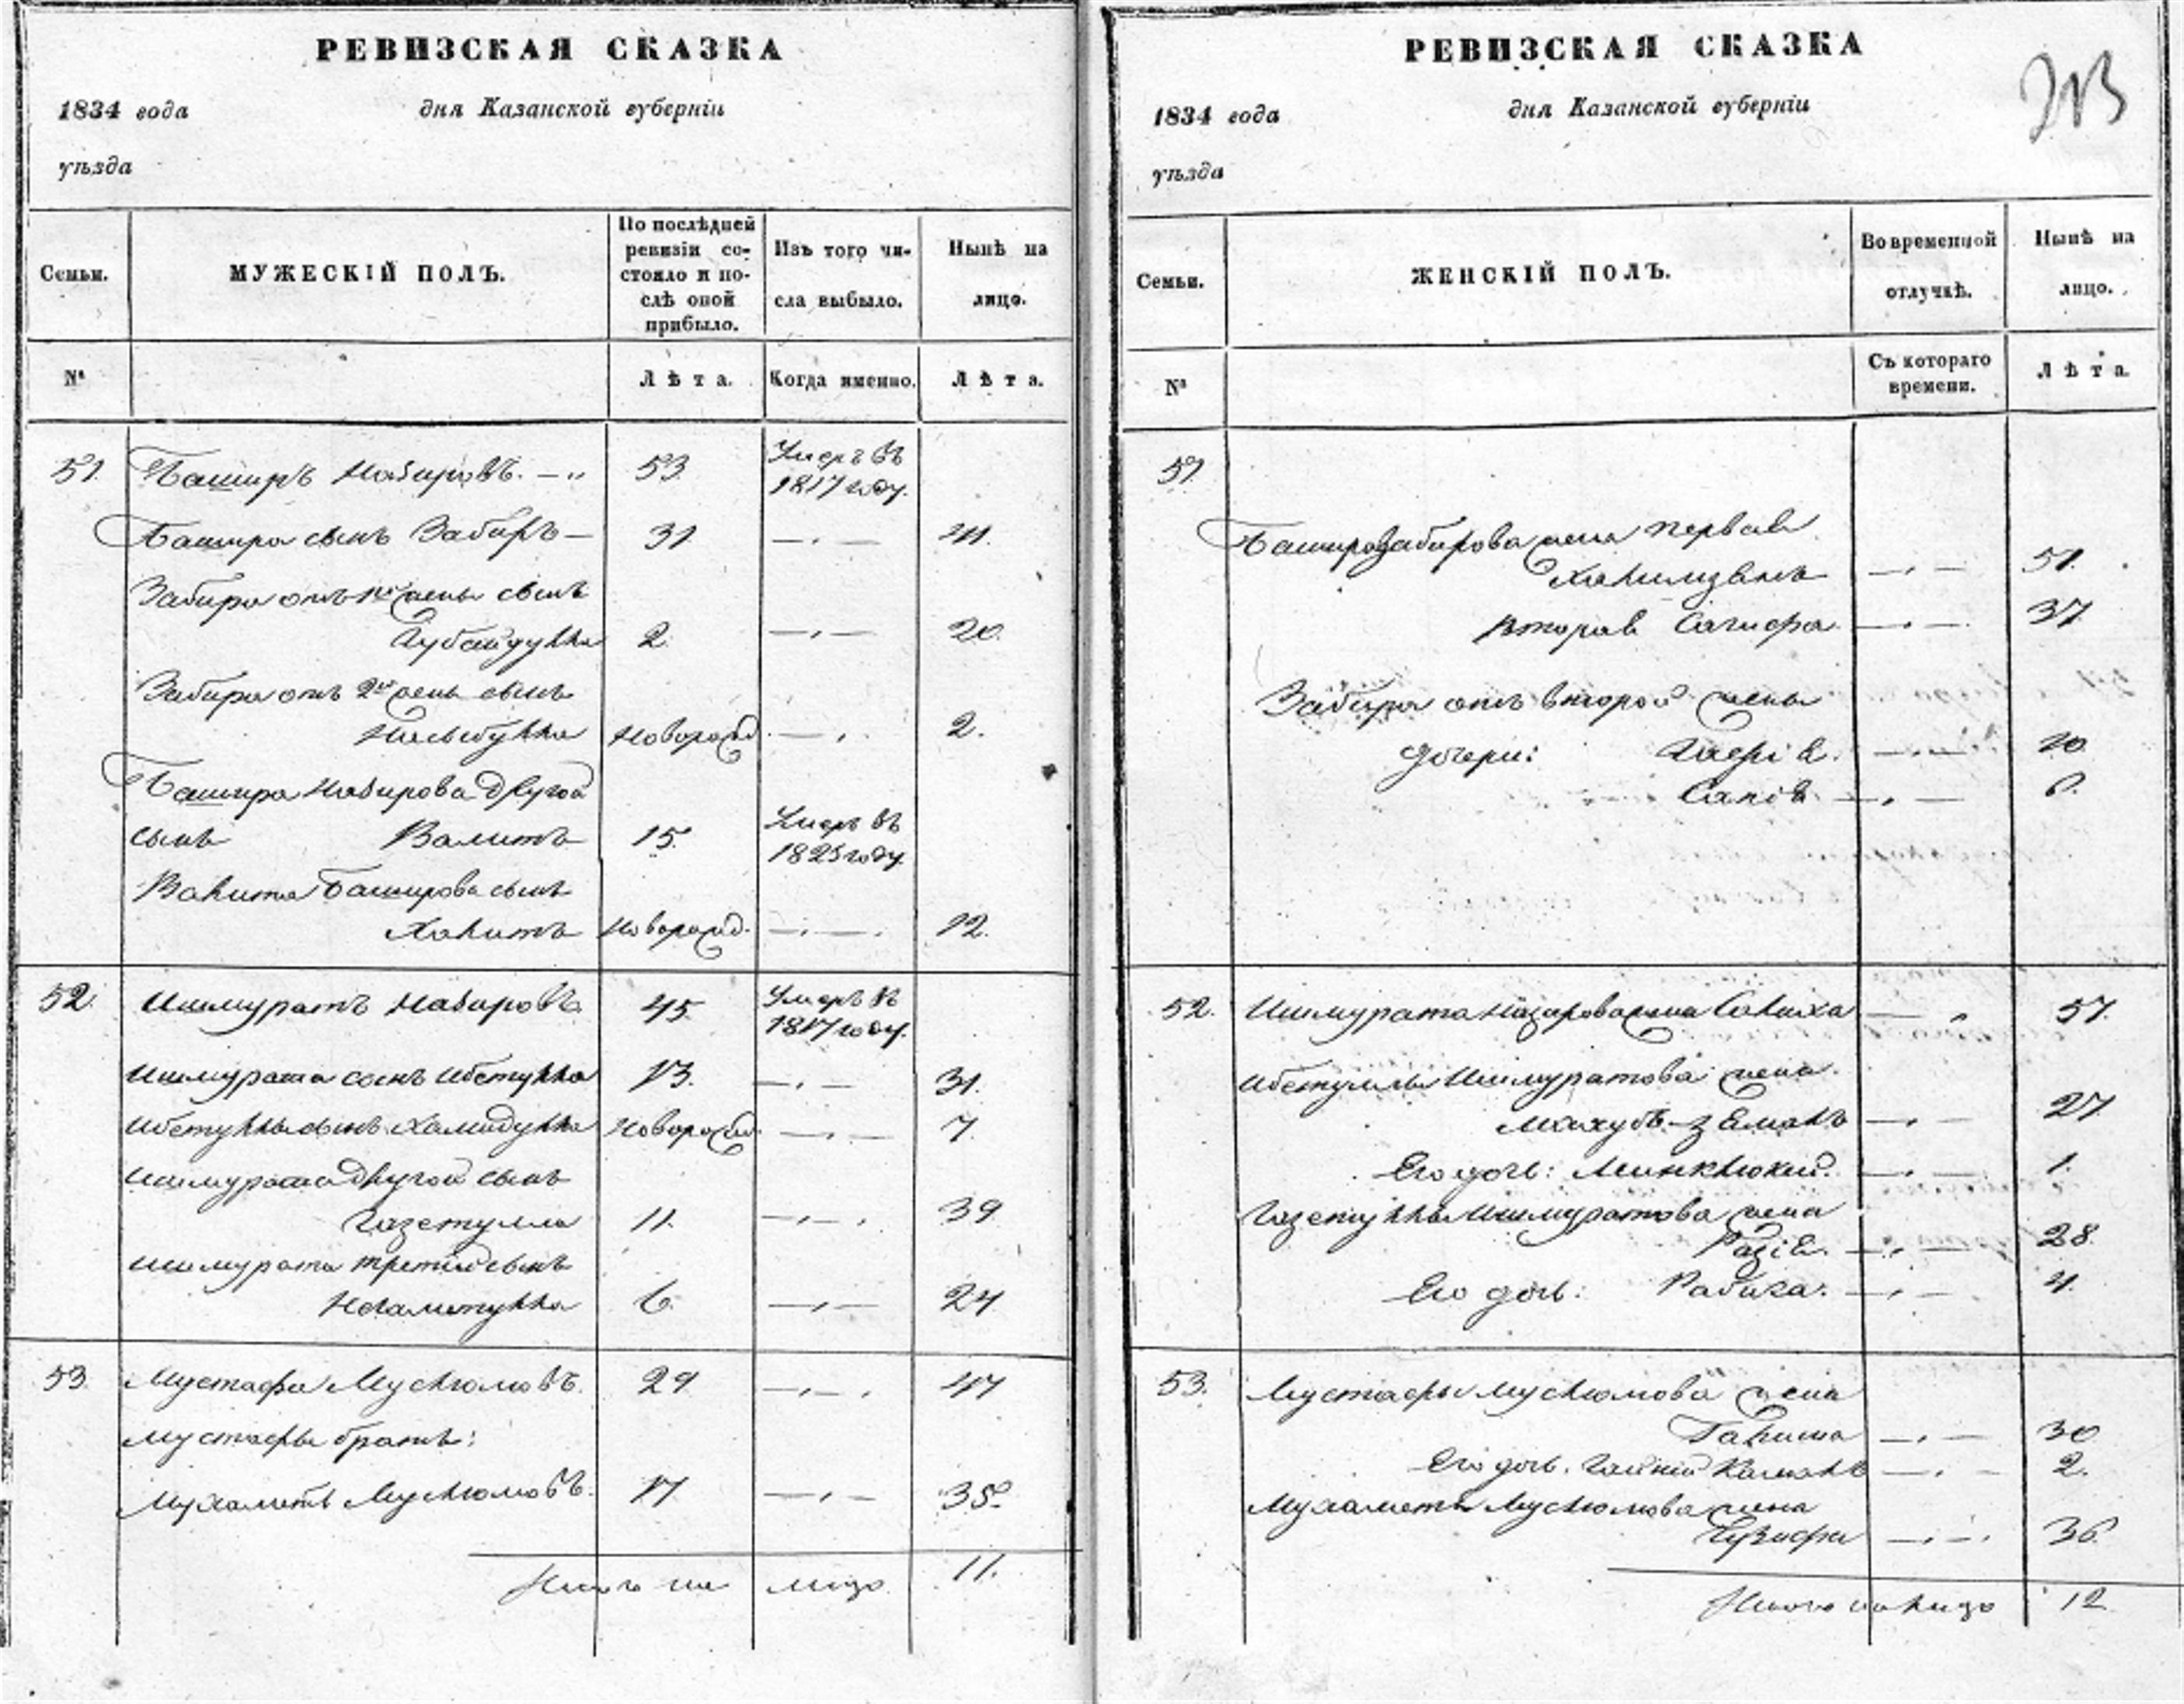 РЕВИЗСКАЯ СКАЗКА
1834 года дня Казанской губернiи
уѣзда
Семьи. МУЖЕСКІЙ ПОЛЪ. По послѣдней ревизіи состояло и послѣ оной прибыло. Изъ того числа выбыло. Нынѣ на лицо.
№ Лѣта. Когда именно. Лѣта.
51. Баширъ Назировъ. 53 Умеръ въ 1817 году.
Башира сынъ Забиръ 31
Забира отъ 1й жены сынъ
Губайдулла 2 20.
Забира отъ 2й жены сынъ
Новорожд. 2.
Башира Назирова другой
сынъ Валитъ 15. Умеръ въ 1825 году.
Валита Баширова сынъ
Халитъ Новорожд. 12.
52. Ишмуратъ Назировъ 45 Умеръ въ 1817 году.
Ишмурата сынъ Ибетулла 13. 31.
Ибетуллы сынъ Хамидулла Новорожд. 7
Ишмурата другой сынъ
Газетулла 11. 39
Ишмурата третiй сынъ
Негаметулла 6. 24
53. Мустафа Муслюмовъ. 29 47
Мустафы братъ:
Мухаметъ Муслюмовъ. 17 35
Итого на лицо 11.
РЕВИЗСКАЯ СКАЗКА
213
1834 года дня Казанской губернiи
уѣзда
Семьи. ЖЕНСКІЙ ПОЛЪ. Во временной отлучкѣ. Нынѣ на лицо.
№ Съ котораго времени. Лѣта.
51
Башира Забирова жена первая
51.
вторая Сагифа 37
Забира отъ второй жены
дочери: 10
Сапiя. 6.
52. Ишмурата Назирова жена Салиха 57.
Ибетуллы Ишмуратова жена
Махубъ-Земалъ 27
Его дочь: 1.
Газетуллы Ишмуратова жена
Разiя. 28
Его дочь: Рабига. 4.
53. Мустафы Муслюмова жена
Галиша 30
Его дочь. 2.
Мухаметя Муслюмова жена
36.
Итого на лицо 12